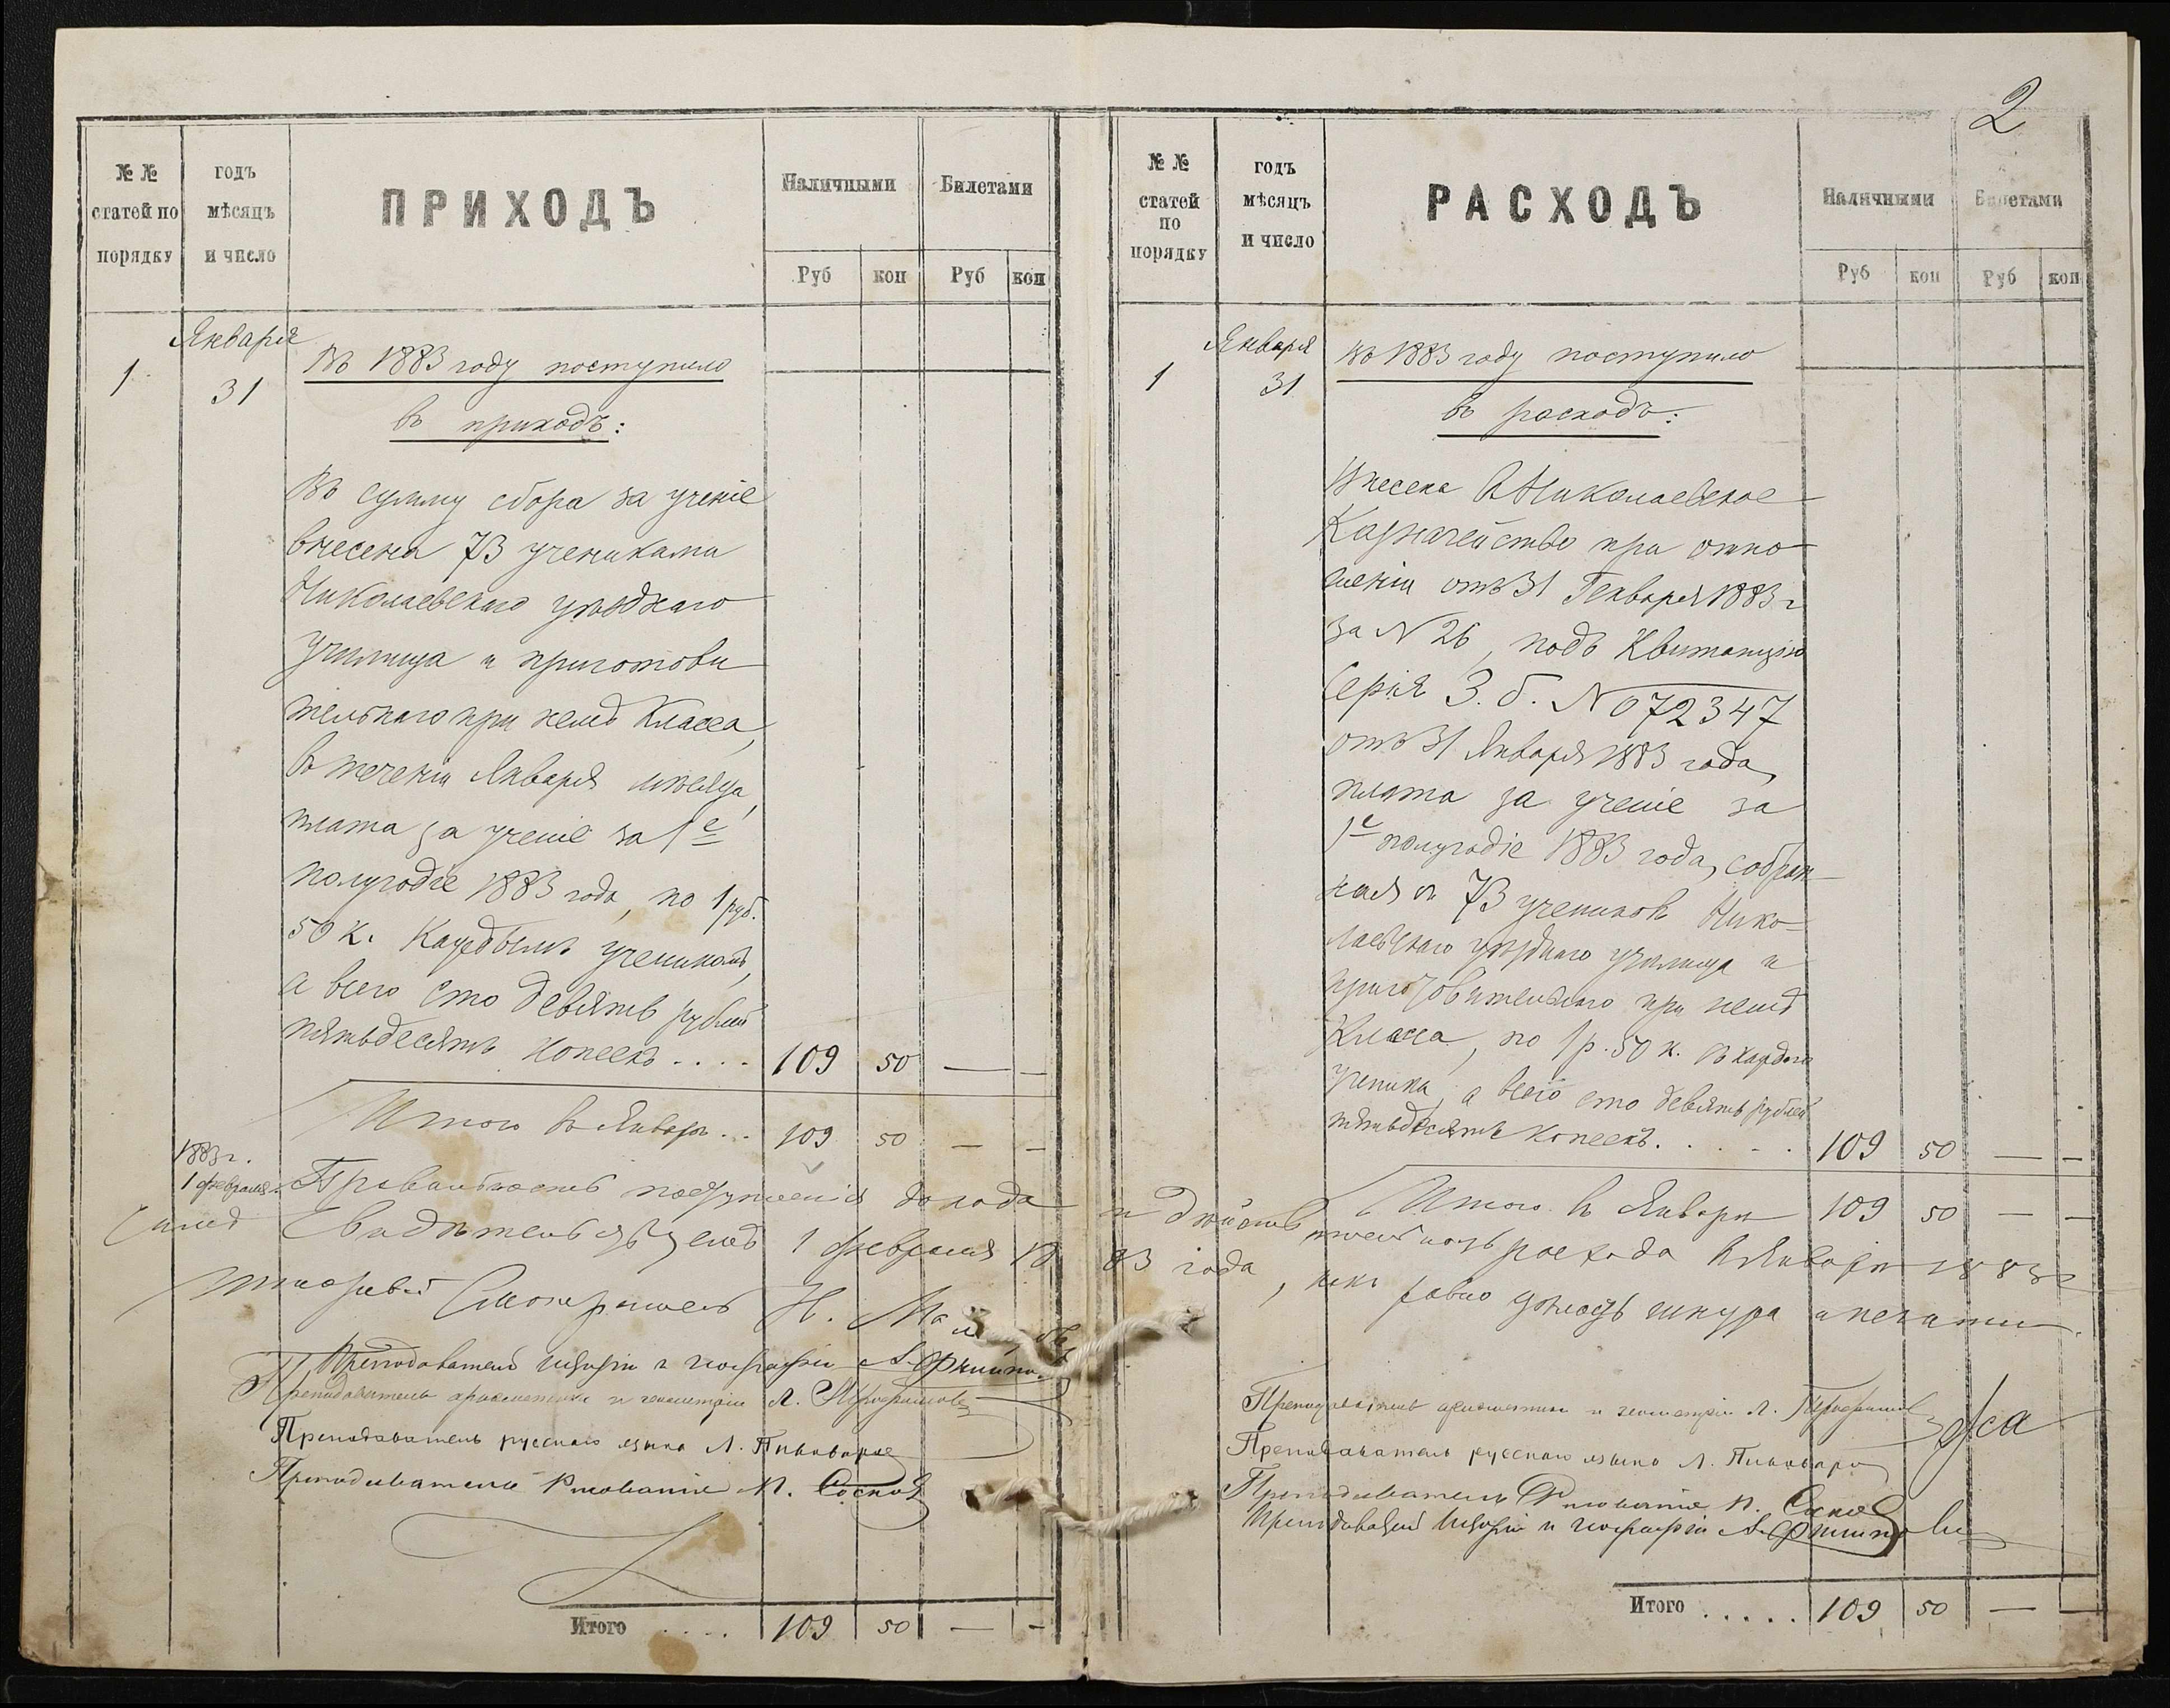 2
№ №
статей по
порядку
годъ
мѣсяцъ
и число
ПРИХОДЪ
Наличными
Билетами
Руб
коп
Руб
коп
1
Января
31
Въ 1883 году поступило
въ приходъ:
Въ сумму сбора за ученіе
внесена 73 учениками
Николаевскаго уѣзднаго
училища и приготови
тельнаго при немъ класса,
въ теченіи Января мѣсяца,
плата за ученіе за 1е
полугодіе 1883 года, по 1 руб.
50 к. каждымъ ученикомъ,
а всего сто девять рублей
пятьдесятъ копеекъ .... 109 50 — —
Итого въ Январѣ ... 109 50 — —
1883 г.
1 февраля
Правильность поступленія дохода и дѣйстви
тельность расхода въ Январѣ 1883 г
Свидѣтельствуемъ 1 февраля 1883 года, какъ равно цѣлость шнура и печати.
Штатный Смотритель Н.
Преподаватель исторіи и географіи А.
Преподаватель ариѳметики и геометріи Л.
Преподаватель русскаго языка Л. Пивоваровъ
Преподаватель Рисованія П. Сосновъ
Итого .... 109 50 — —
№ №
статей
по
порядку
годъ
мѣсяцъ
и число
РАСХОДЪ
Наличными
Билетами
Руб
коп
Руб
коп
1
Января
31
Въ 1883 году поступило
въ расходъ:
Внесена въ Николаевское
Казначейство при отно
шеніи отъ 31 Генваря 1883 г
за № 26, подъ квитанцію
Серія З. б. № 072347
отъ 31 Января 1883 года,
плата за ученіе за
1е полугодіе 1883 года, собран
ная съ 73 учениковъ Нико
лаевскаго уѣзднаго училища и
приготовительнаго при немъ
класса, по 1 р. 50 к. съ каждаго
ученика, а всего сто девять рублей
пятьдесятъ копеекъ. . . . . 109 50 — —
Итого въ Январѣ 109 50 — —
Преподаватель ариѳметики и геометріи Л.
Преподаватель русскаго языка Л. Пивоваровъ
Преподаватель Рисованія П. Сосновъ
Преподаватель исторіи и географіи А.
Итого ..... 109 50 — —